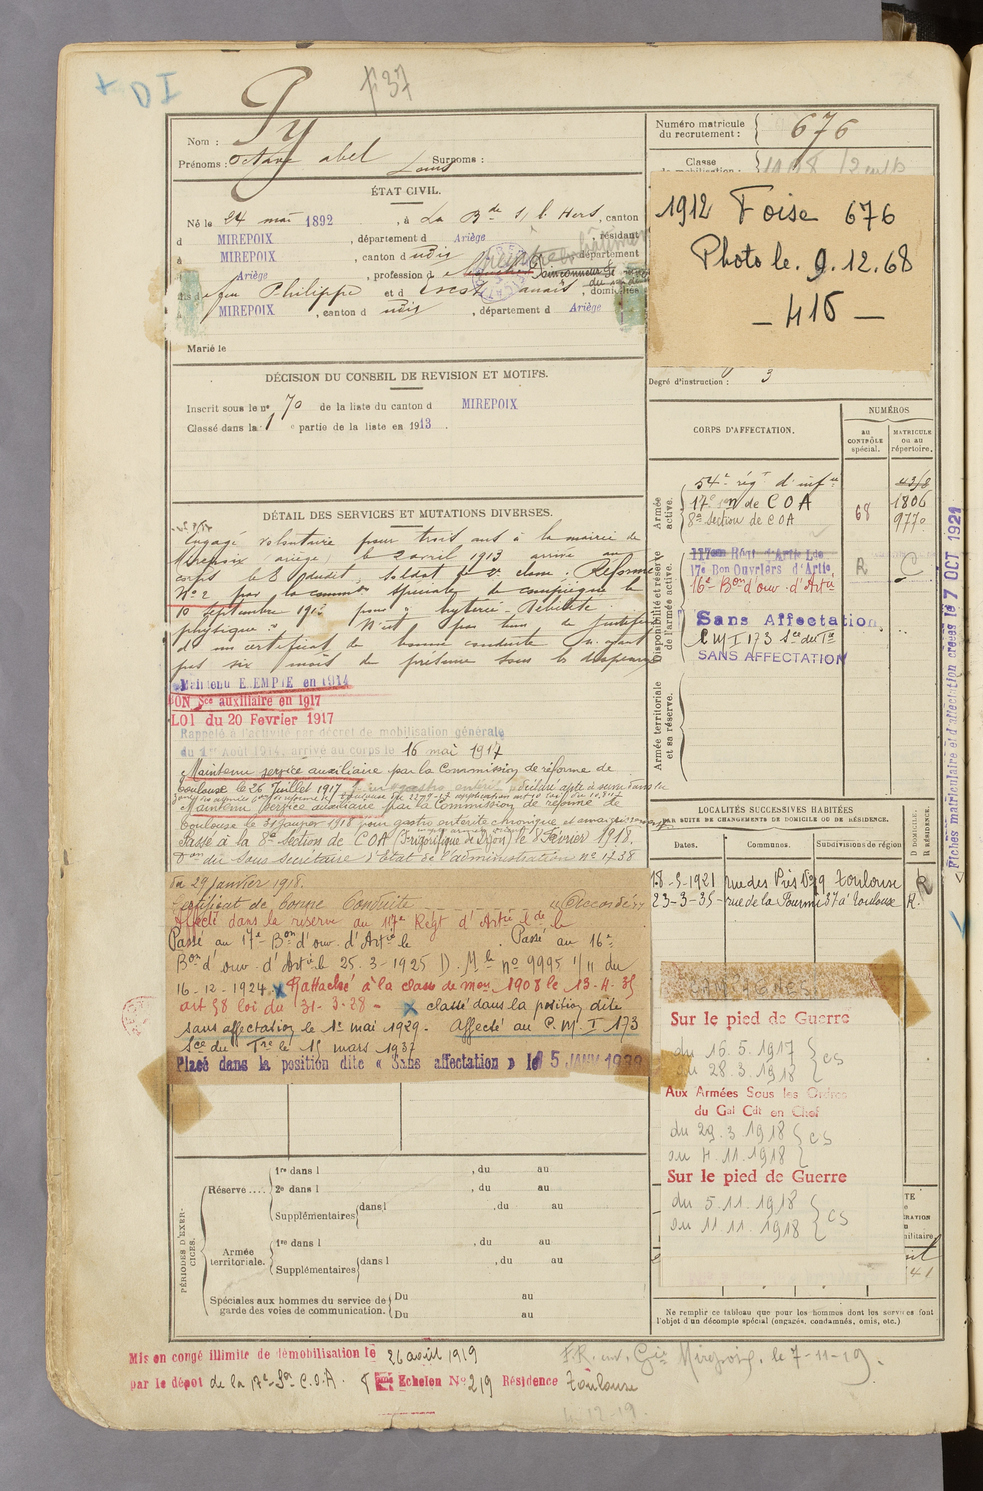 + DI
F 37
Nom : Py
Prénoms : Octave abel Louis Surnoms :
Numéro matricule
du recrutement : 676
Classe
ÉTAT CIVIL.
Né le 24 mai 1892, à La Bde S/ l. Hers, canton
d MIREPOIX, département d Ariège, résidant
à MIREPOIX, canton d udis, département
Ariège, profession d
fils de feu Philippe et d anaïs, domiciliés
à MIREPOIX, canton d udis, département d Ariège
Marié le
1912 Foise 676
Photo le. 9.12.68
— 415 —
Degré d'instruction : 3
DÉCISION DU CONSEIL DE REVISION ET MOTIFS.
Inscrit sous le no 70 de la liste du canton d MIREPOIX
Classé dans la 1e partie de la liste en 1913.
CORPS D'AFFECTATION.
NUMÉROS
AU CONTRÔLE spécial.
MATRICULE OU AU répertoire.
Armée active.
54e régt d'infie
17e son de COA 68 1806
8e Section de COA 9770
Disponibilité et réserve de l'armée active.
117eme Régt d'Artie Lde R C
17e Bon Ouvriers d'Artie
16e Bon d'ouv. d'Artie
Sans Affectation.
C M I 173 Sce du Tre
SANS AFFECTATION
Armée territoriale et sa réserve.
DÉTAIL DES SERVICES ET MUTATIONS DIVERSES.
Engagé volontaire pour trois ans à la mairie de
Mirepoix ariège, le 2 avril 1913 arrivé au
corps le 8 dudit, soldat de 2e classe. Réformé
No 2 par la common spéciale de compiègne le
10 Septembre 1913 pour " hystérie - Débilité
physique ". N'est pas tenu de justifier
d'un certificat de bonne conduite n'ayant
pas six mois de présence sous les drapeaux
Maintenu EXEMPTE en 1914
BON Sce auxiliaire en 1917
LOI du 20 Fevrier 1917
Rappelé à l'activité par décret de mobilisation générale
du 1er Août 1914, arrivé au corps le 16 mai 1917
Maintenu service auxiliaire par la Commission de réforme de
Toulouse le 26 Juillet 1917
Maintenu service auxiliaire par la Commission de réforme de
Toulouse le 31 Janvier 1918 pour gastro entérite chronique et amaigrissement
Passé à la 8e Section de COA (Frigorifique de Dijon) le 8 Février 1918.
Don du Sous Secrétaire d'Etat de l'administration no 1738
du 29 Janvier 1918.
Certificat de bonne Conduite "Accordé"
Affecté dans la réserve au 117e Régt d'Artie Lde le
Passé au 17e Bon d'ouv. d'Artie le . Passé au 16e
Bon d'ouv. d'Artie le 25-3-1925 D. Mle no 9995 1/11 du
16-12-1924. x Rattaché à la classe de mon 1908 le 13-4-35
art 58 loi du 31-3-28 - x classé dans la position dite
sans affectation le 1er mai 1929. Affecté au C.M. I 173
Sce du Tre le 15 mars 1937
Placé dans la position dite « Sans affectation » le 15 JANV 1939
LOCALITÉS SUCCESSIVES HABITÉES
PAR SUITE DE CHANGEMENTS DE DOMICILE OU DE RÉSIDENCE.
Dates. Communes. Subdivisions de région D DOMICILE. R RÉSIDENCE.
18-3-1921 rue des Près No 9 Toulouse R
23-3-35 rue de la Pomme 37 à Toulouse R.
CAMPAGNES
Sur le pied de Guerre
du 16.5.1917
au 28.3.1918 } CS
Aux Armées Sous les Ordres
du Gal Cdt en Chef
du 29.3.1918
au 4.11.1918 } CS
Sur le pied de Guerre
du 5.11.1918
au 11.11.1918 } CS
PÉRIODES D'EXERCICES.
Réserve ....
1re dans l , du au
2e dans l , du au
Supplémentaires dans l , du au
Armée territoriale.
1re dans l , du au
Supplémentaires dans l , du au
Spéciales aux hommes du service de
garde des voies de communication.
Du au
Du au
Ne remplir ce tableau que pour les hommes dont les services font
l'objet d'un décompte spécial (engagés, condamnés, omis, etc.)
Fiches matriculaire et d'affectation créées le 7 OCT 1921
Mis en congé illimité de démobilisation le 26 avril 1919
par le dépôt de la 17e Son C.O.A. Echelon No 219 Résidence Toulouse
F.R. env. Gie Mirepoix. le 7-11-19.
4-12-19.